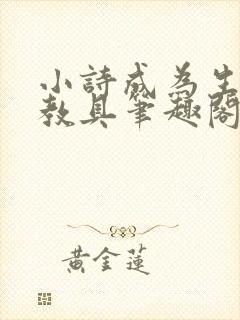 小詩成為生
教具筆趣閣
黃金蓮